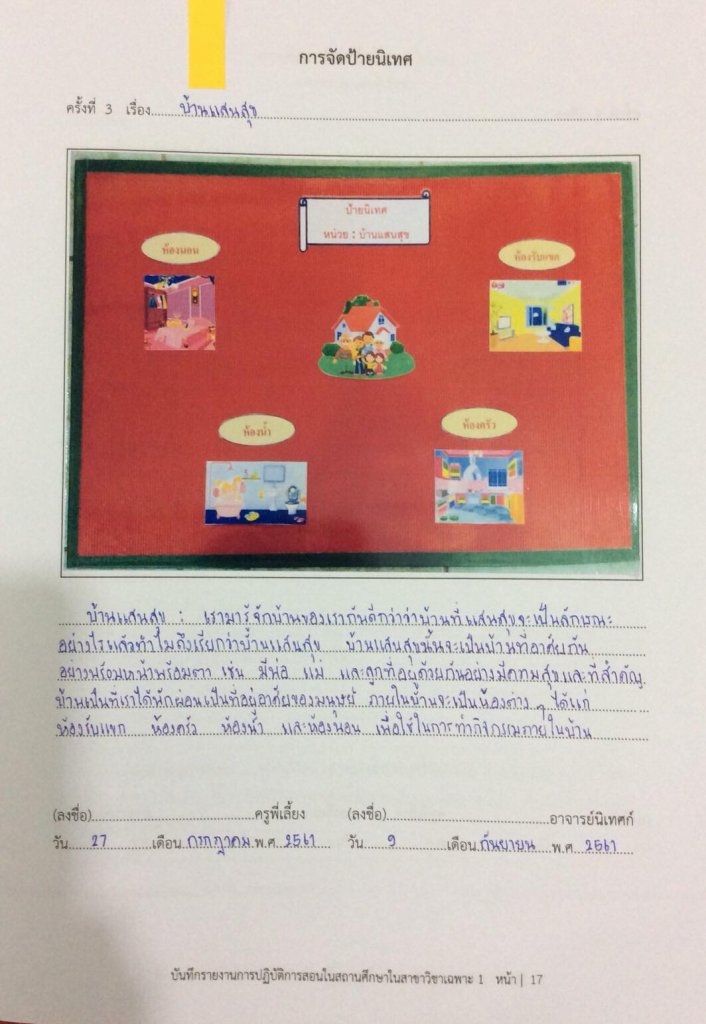 การจัดป้ายนิเทศ
ครั้งที่ 3 เรื่อง บ้านแสนสุข
ป้ายนิเทศ
หน่วย : บ้านแสนสุข
ห้องนอน
ห้องรับแขก
ห้องน้ำ
ห้องครัว
บ้านแสนสุข : เรามารู้จักบ้านของเรากันดีกว่าว่าบ้านที่แสนสุขจะเป็นลักษณะ
อย่างไรแล้วทำไมถึงเรียกว่าบ้านแสนสุข บ้านแสนสุขนั้นจะเป็นบ้านที่อาศัยกัน
อย่างพร้อมหน้าพร้อมตา เช่น มีพ่อ แม่ และลูกที่อยู่ด้วยกันอย่างมีความสุขและที่สำคัญ
บ้านเป็นที่เราได้พักผ่อนเป็นที่อยู่อาศัยของมนุษย์ ภายในบ้านจะเป็นห้องต่าง ๆ ได้แก่
ห้องรับแขก ห้องครัว ห้องน้ำ และห้องนอน เพื่อใช้ในการทำกิจกรรมภายในบ้าน
(ลงชื่อ)ครูพี่เลี้ยง (ลงชื่อ)อาจารย์นิเทศก์
วัน 27 เดือน กรกฎาคม พ.ศ. 2561 วัน 9 เดือน กันยายน พ.ศ 2561
บันทึกรายงานการปฏิบัติการสอนในสถานศึกษาในสาขาวิชาเฉพาะ 1 หน้า | 17